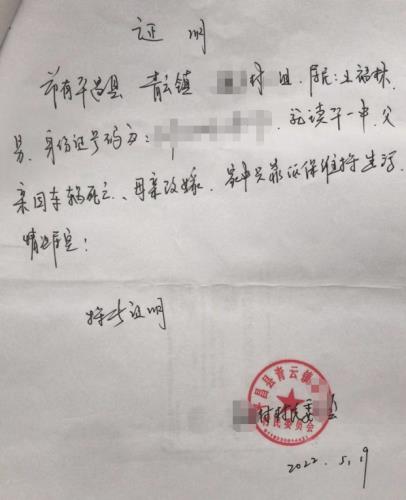 证明
兹有平昌县 青云镇 村 组 居民王福林,
男,身份证号码为: ,就读平一中,父
亲因车祸死亡、母亲改嫁,家中只靠低保维持生活,
情况属实!
特此证明
昌县青云镇
村民委员会
村村民委 会
2022.5.19